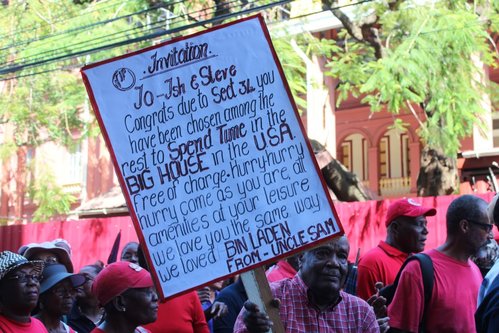 Invitation
To - Ish & Steve
Congrats due to Sect 34, you
have been chosen among the
rest to Spend Time in the
BIG HOUSE in the USA
Free of charge. hurry-hurry
hurry come as you are, all
amenities at your leisure
we love you the same way
we loved BIN LADEN
FROM - UNCLE SAM